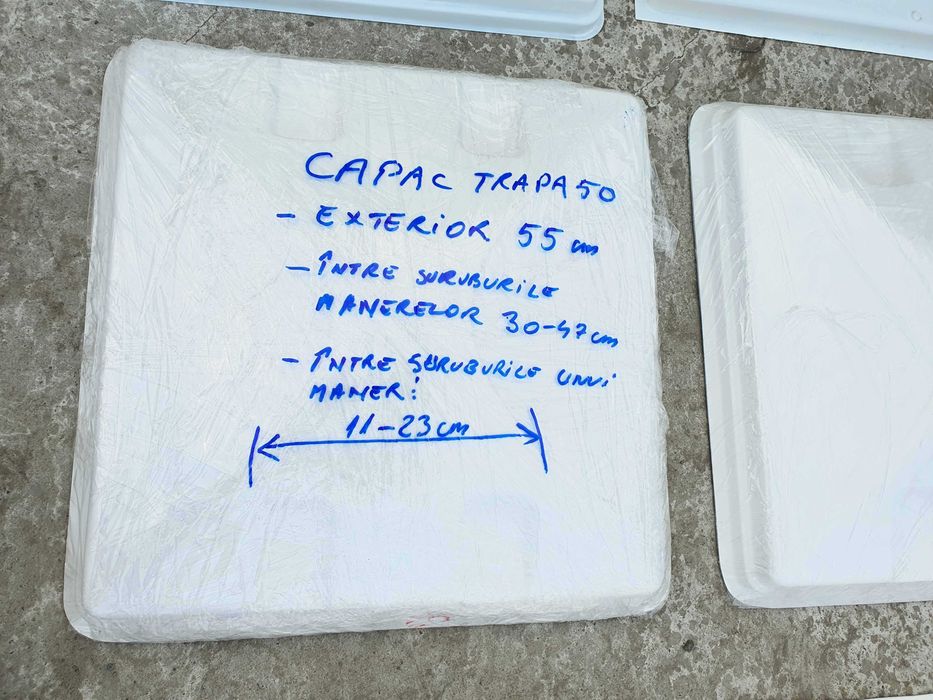 CAPAC TRAPA 50
- EXTERiOR 55 cm
- ÎNTRE SURUBURiLE
MANERELOR 30-47 cm
- ÎNTRE SURUBURiLE UNUi
MANER:
11-23 cm